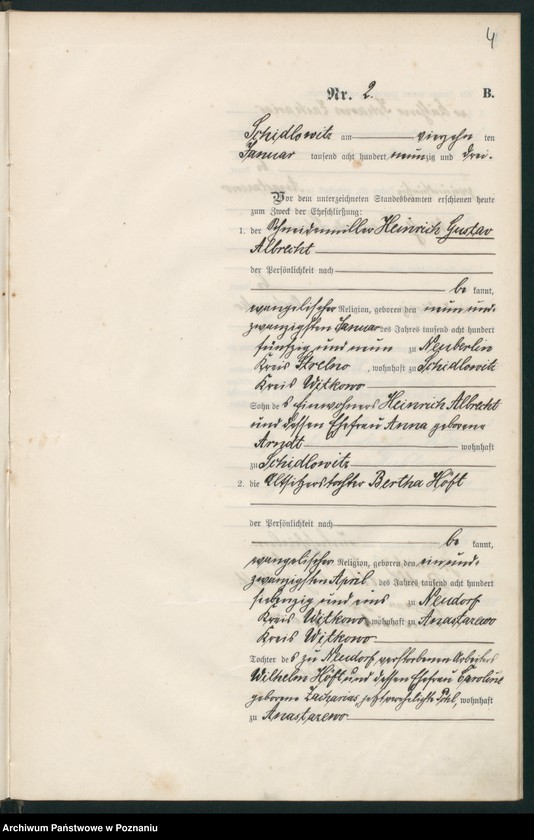 4
Nr. 2. B.
Schidlowitz am vierzehn ten
Januar tausend acht hundert neunzig und drei.
Vor dem unterzeichneten Standesbeamten erschienen heute
zum Zweck der Eheschließung:
1. der Schneidemüller Heinrich Gustav
Albrecht
der Persönlichkeit nach
be kannt,
evangelischer Religion, geboren den neun und
zwanzigsten Januar des Jahres tausend acht hundert
fünfzig und neun zu Neuberlin
Kreis Strelno, wohnhaft zu Schidlowitz
Kreis Witkowo
Sohn des Einwohners Heinrich Albrecht
und dessen Ehefrau Anna geborene
Arndt wohnhaft
zu Schidlowitz
2. die Altsitzerstochter Bertha Höft
der Persönlichkeit nach
be kannt,
evangelischer Religion, geboren den ein und
zwanzigsten April des Jahres tausend acht hundert
siebenzig und eins zu Neudorf
Kreis Witkowo, wohnhaft zu Anastazewo
Kreis Witkowo
Tochter des zu Neudorf verstorbenen Arbeiters
Wilhelm Höft und dessen Ehefrau Caroline
geborene Zacharias, jetzt verehelichte, wohnhaft
zu Anastazewo
Archiwum Państwowe w Poznaniu